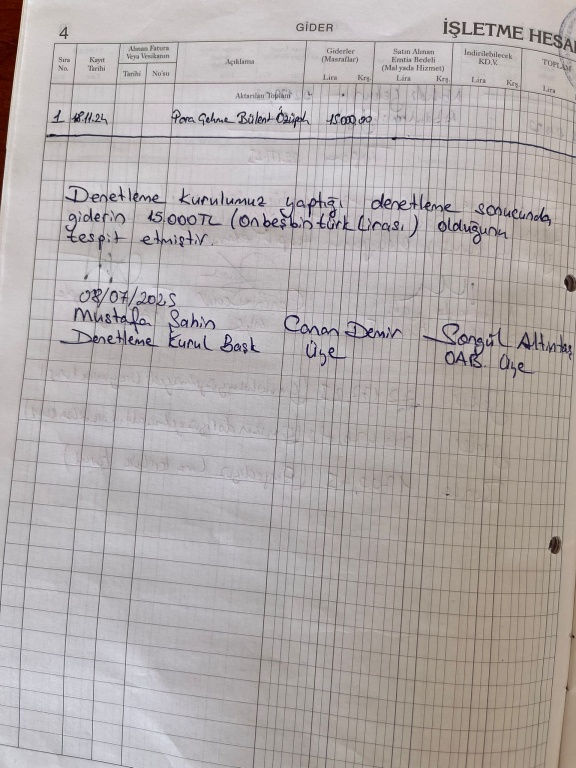 4
GİDER
İŞLETME HESA
Sıra No.
Kayıt Tarihi
Alınan Fatura Veya Vesikanın
Tarihi No'su
Açıklama
Giderler (Masraflar)
Lira Krş.
Satın Alınan Emtia Bedeli (Mal yada Hizmet)
Lira Krş.
İndirilebilecek K.D.V.
Lira Krş.
TOPLA
Lira
Aktarılan Toplam
1 18.11.24 Para Çekme Bülent 15000,00
Denetleme kurulumuz yaptığı denetleme sonucunda
giderin 15.000TL (onbeşbin türk lirası) olduğunu
tespit etmiştir.
08/07/2025
Mustafa Şahin Canan Demir Songül Altıntaş
Denetleme Kurul Başk Üye OAB Üye